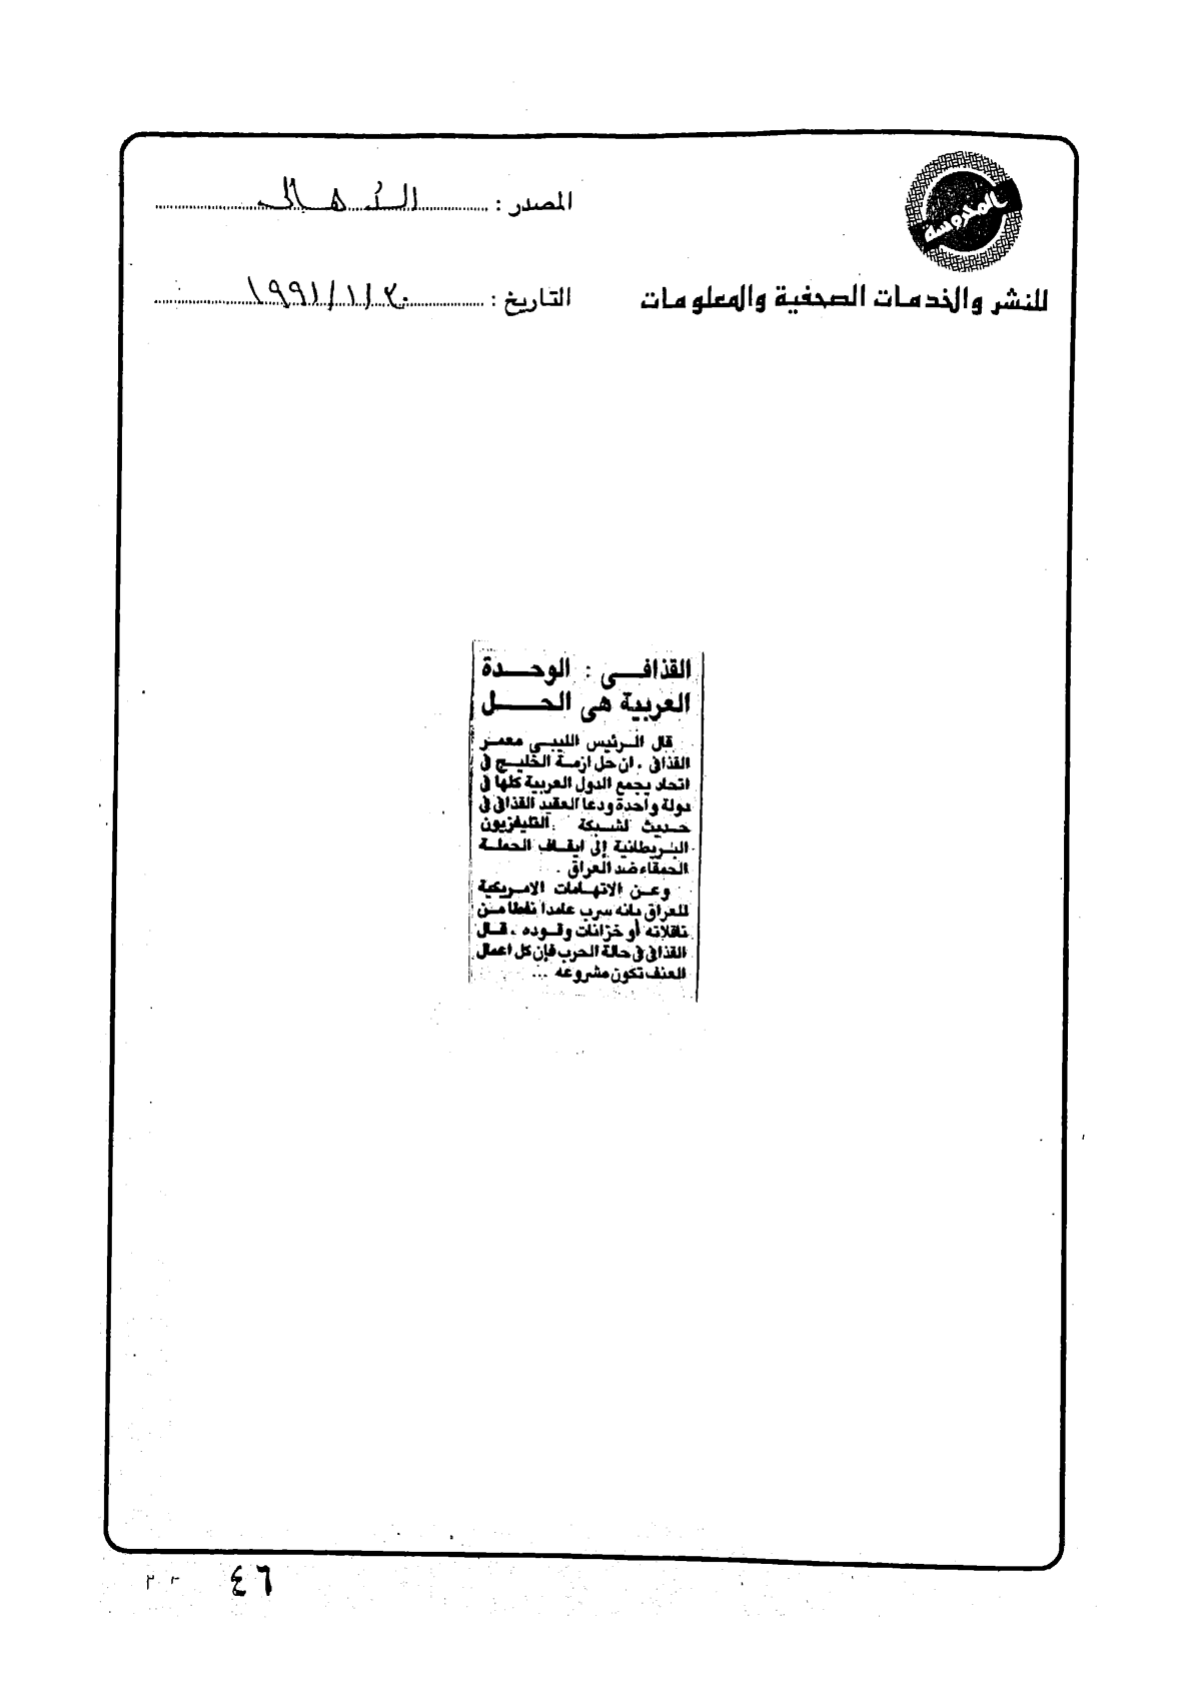 المحروسة
للنشر والخدمات الصحفية والمعلومات
المصدر : الأهالى
التاريخ : ٣٠/١/١٩٩١
القذافــى : الوحــدة
العربية هى الحــــل
قال الــرئيس الليبى معمــر
القذافى ، ان حل ازمــة الخليــج فى
اتحاد يجمع الدول العربية كلها فى
دولة واحدة ودعا العقيد القذافى فى
حديث لشبكة التليفزيون
البريطانية إلى ايقــاف الحملــة
الحمقاء ضد العراق .
وعــن الاتهــامات الامــريكية
للعراق بانه سرب عامدا نفطا مــن
ناقلاته أو خزانات وقــوده ، قــال
القذافى فى حالة الحرب فإن كل اعمال
العنف تكون مشروعه ...
٤٦